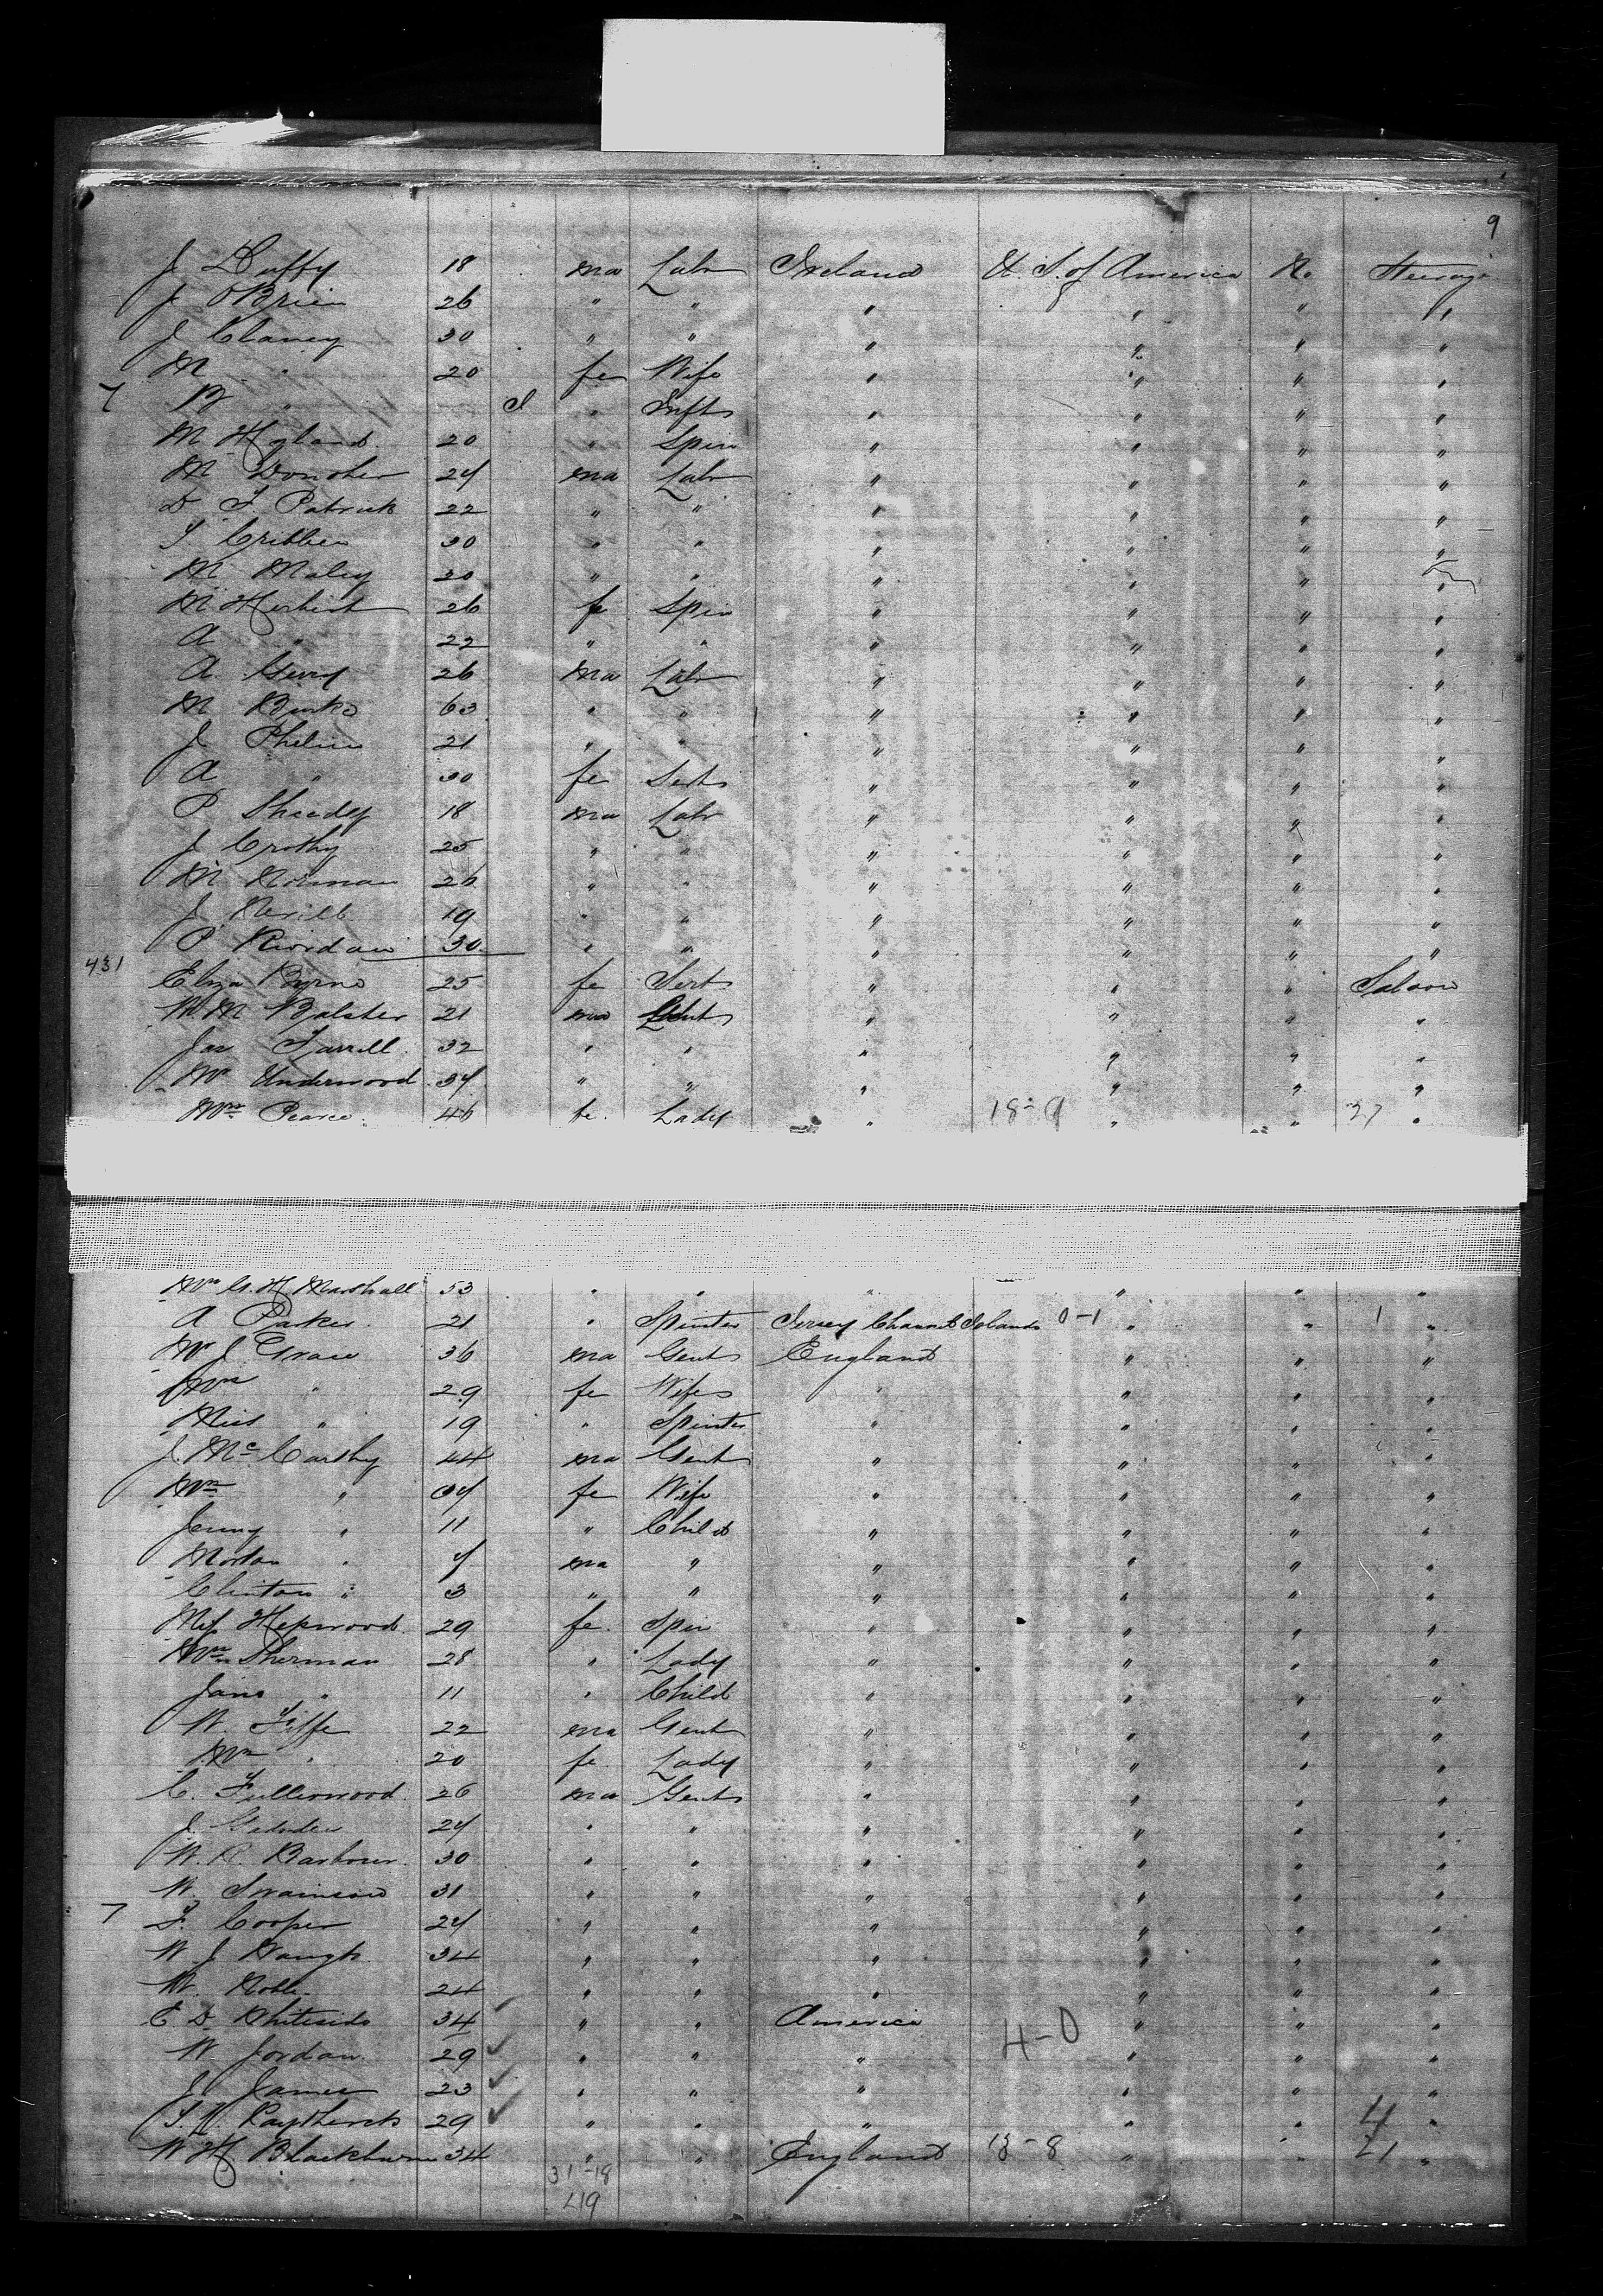 9
J Duffy 18 ma Labr Ireland U. S. of America No Steerage
J OBrien 26 " " " " " "
J Clancy 30 " " " " " "
M " 20 fe Wife " " " "
7 B " I " Infts " " " "
M Hyland 20 " Spin " " " "
M Donoher 24 ma Labr " " " "
D F. Patrick 22 " " " " " "
T Cribben 30 " " " " " "
M Maley 20 " " " " " "
M Herbert 26 fe Spin " " " "
A " 22 " " " " " "
A. 26 ma Labr " " " "
M Burke 63 " " " " " "
J Phelin 21 " " " " " "
A " 30 fe " " " "
P Sheedy 18 ma Labr " " " "
J Crothy 25 " " " " " "
M Norman 26 " " " " " "
J 19 " " " " " "
P Riordan 30 " " " " " "
431
Eliza Byrne 25 fe Sert " " " Saloon
W M Balster 21 ma Gent " " " "
Jas Farrell 32 " " " " " "
Mr Underwood 34 " " " " " "
Mrs Pearce 46 fe. Lady " 18-9 " " 27 "
Mrs G. H. Marshall 53 " " " " " "
A Parker 21 " Spinster Jersey Channel Islands 0-1 " " 1 "
W J Grace 36 ma Gent England " " "
Mrs " 29 fe Wife " " " "
Miss " 19 " Spinster " " " "
J. McCarthy 44 ma Gent " " " "
Mrs " 34 fe Wife " " " "
Jenny " 11 " Child " " " "
" 7 ma " " " " "
Clinton " 3 " " " " " "
Miss Hepwood 29 fe. Spin " " " "
Mrs Sherman 28 " Lady " " " "
Jane " 11 " Child " " " "
W. Fiffe 22 ma Gent " " " "
Mrs " 20 fe. Lady " " " "
C. Fullerwood 26 ma Gent " " " "
J. 24 " " " " " "
W. R. Barbour 30 " " " " " "
W. Swainson 31 " " " " " "
7 F. Cooper 24 " " " " " "
W J Waugh 34 " " " " " "
W. Noble 24 " " " " " "
E D Whiteside 34 " " America 4-0 " " "
W Jordan 29 " " " " " "
J James 23 " " " " " "
29 " " " " " 4 "
W H Blackburn 34 " " England 13-8 " " 21 "
31-18
49